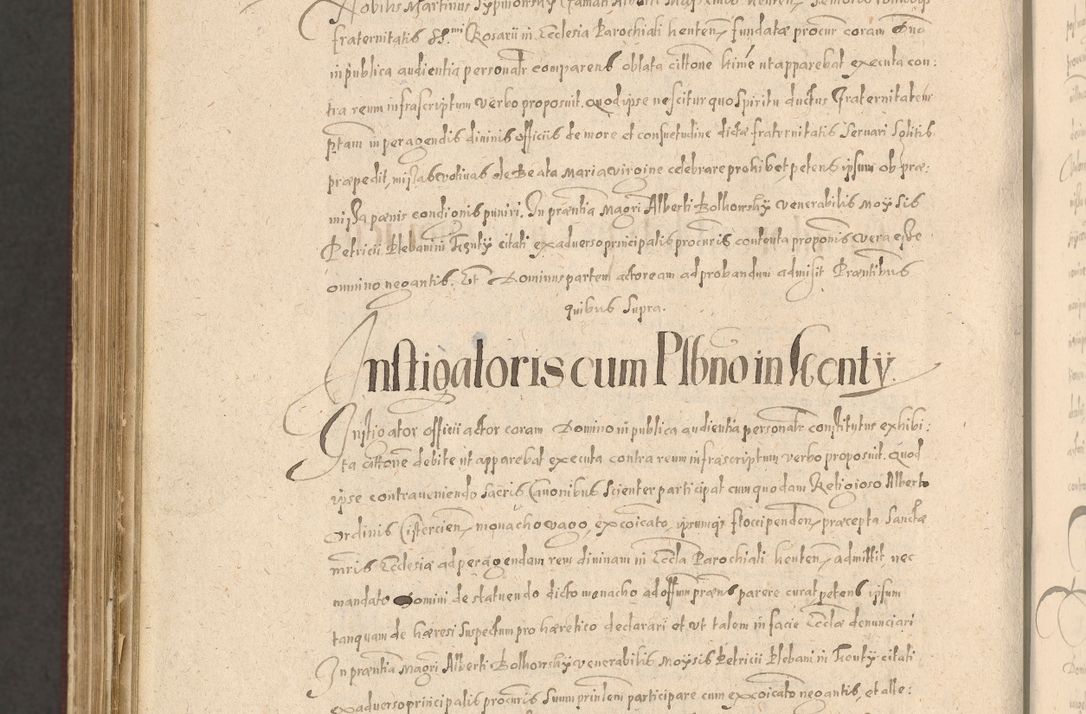 Nobilis Martinus
fraternitatis SS.mi Rosarii in Ecclesia Parochiali Kenten. fundatæ procur coram Dno
in publica audientia personalr comparens oblata cittone htime ut apparebat executa con:
tra reum infrascriptum verbo proposuit. Quod ipse nescitur quo spiritu ductus Fraternitatem
ptam in peragendis diuinis officiis de more et consuetudine dictæ fraternitatis seruari solitis
præpedit, missas votiuas de Beata Maria virgine celebrare prohibet petens ipsum ob præ:
missa pænis condignis puniri. In præntia Magri Alberti Bolhowsky venerabilis Moysis
Petricii Plebani in Kenty citati ex aduerso principalis procuris contenta proponis vera esse
omnino negantis. Et Dominus partem actoream ad probandum admisit Præntibus
quibus supra.
Instigatoris cum Plbno in Kenty
Instigator officii actor coram Domino in publica audientia personalr constitutus exhibi:
ta cittone debite ut apparebat executa contra reum infrascriptum verbo proposuit. Quod
ipse contraueniendo sacris Canonibus scienter participat cum quodam Religioso Alberto
ordinis Cistercien. monacho vago, excoicato, ipsumq floccipenden. præcepta Sanctæ
mris Ecclesiæ ad peragendam rem diuinam in Eccla Parochiali Kenten. admittit nec
mandato Domini de statuendo dicto monacho ad offum præns parere curat petens ipsum
tanquam de hæresi suspectum pro hæretico declarari et ut talem in facie Ecclæ denunciari
In præntia Magri Alberti Bolhowsky venerabilis Moysis Petricii Plebani in Kenty citati
ex aduerso principalis procuris suum prinlem participare cum excoicato negantis, et alle: